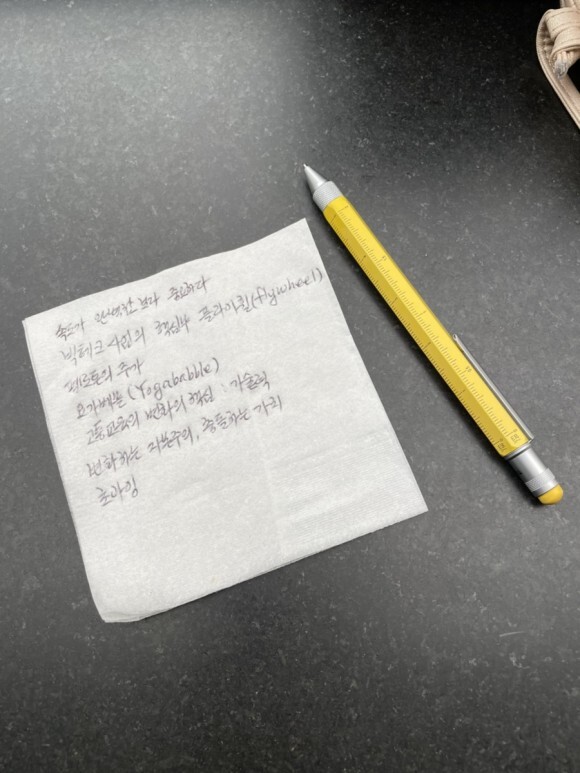 속도가 완벽함 보다 중요하다
빅테크 사업의 핵심부 플라이휠(flywheel)
펠로톤의 주가
요가베블(Yogababble)
고등교육의 변화의 핵심 : 기술력
변화하는 자본주의, 충돌하는 가치
초과잉